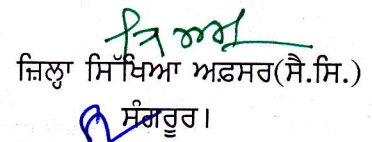 ਜ਼ਿਲ੍ਹਾ ਸਿੱਖਿਆ ਅਫ਼ਸਰ(ਸੈ.ਸਿ.)
ਸੰਗਰੂਰ।